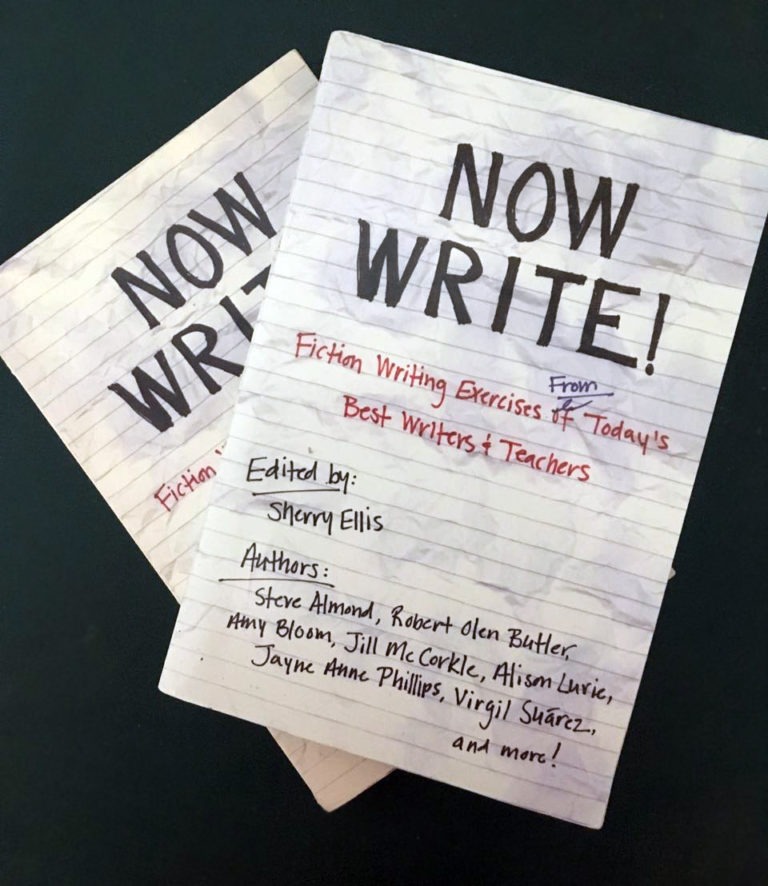 NOW
WRITE!
Fiction Writing Exercises of From Today's
Best Writers & Teachers
Edited by:
Sherry Ellis
Authors:
Steve Almond, Robert Olen Butler,
Amy Bloom, Jill McCorkle, Alison Lurie,
Jayne Anne Phillips, Virgil Suárez,
and more!
NOW
WRI
Fiction